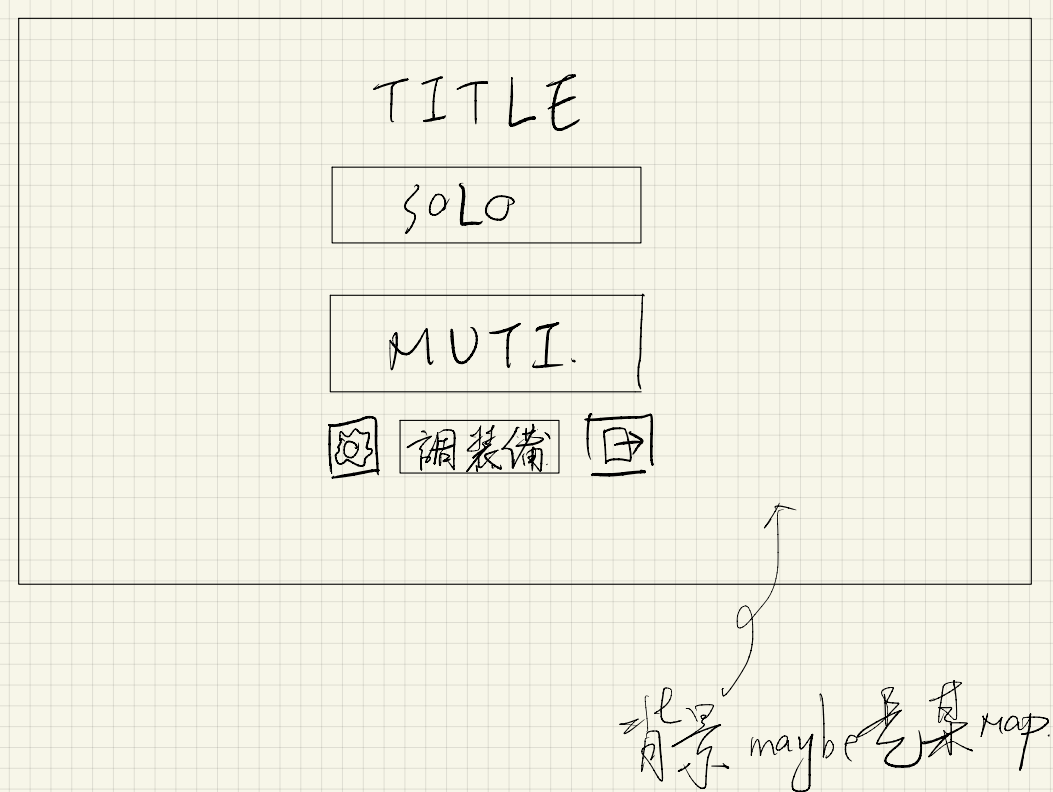 TITLE
SOLO
MUTI.
調裝備
背景 maybe是某 MAP.